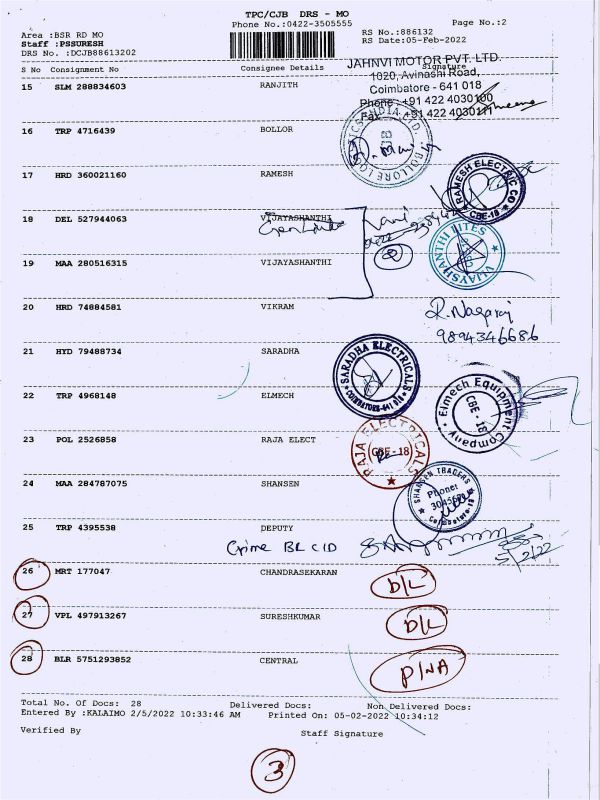 TPC/CJB DRS - MO
Phone No.:0422-3505555
Page No.:2
Area :BSR RD MO
RS No.:886132
Staff :PSSURESH
RS Date:05-Feb-2022
DRS No. :DCJB88613202
S No Consignment No Consignee Details Signature
JAHNVI MOTOR PVT. LTD.
1020, Avinashi Road,
Coimbatore - 641 018
Phone : +91 422 4030100
Fax : +91 422 4030111
15 SLM 288834603 RANJITH
16 TRP 4716439 BOLLOR
17 HRD 360021160 RAMESH
RAMESH ELECTRIC CO
CBE-18
18 DEL 527944063 VIJAYASHANTHI
2
VIJAYSHANTHI LITES
19 MAA 280516315 VIJAYASHANTHI
20 HRD 74884581 VIKRAM
R. Nagaraj
9894346686
21 HYD 79488734 SARADHA
SARADHA ELECTRICALS
COIMBATORE-641 018
22 TRP 4968148 ELMECH
Elmech Equipment Company
CBE - 18
23 POL 2526858 RAJA ELECT
RAJA ELECTRICALS
CBE - 18
24 MAA 284787075 SHANSEN
SHANSEN TRADERS
Phone:
Coimbatore-18
25 TRP 4395538 DEPUTY
Crime BR CID
5/2/22
26 MRT 177047 CHANDRASEKARAN D/L
27 VPL 497913267 SURESHKUMAR D/L
28 BLR 5751293852 CENTRAL P/NA
Total No. Of Docs: 28 Delivered Docs: Non Delivered Docs:
Entered By :KALAIMO 2/5/2022 10:33:46 AM Printed On: 05-02-2022 10:34:12
Verified By Staff Signature
3